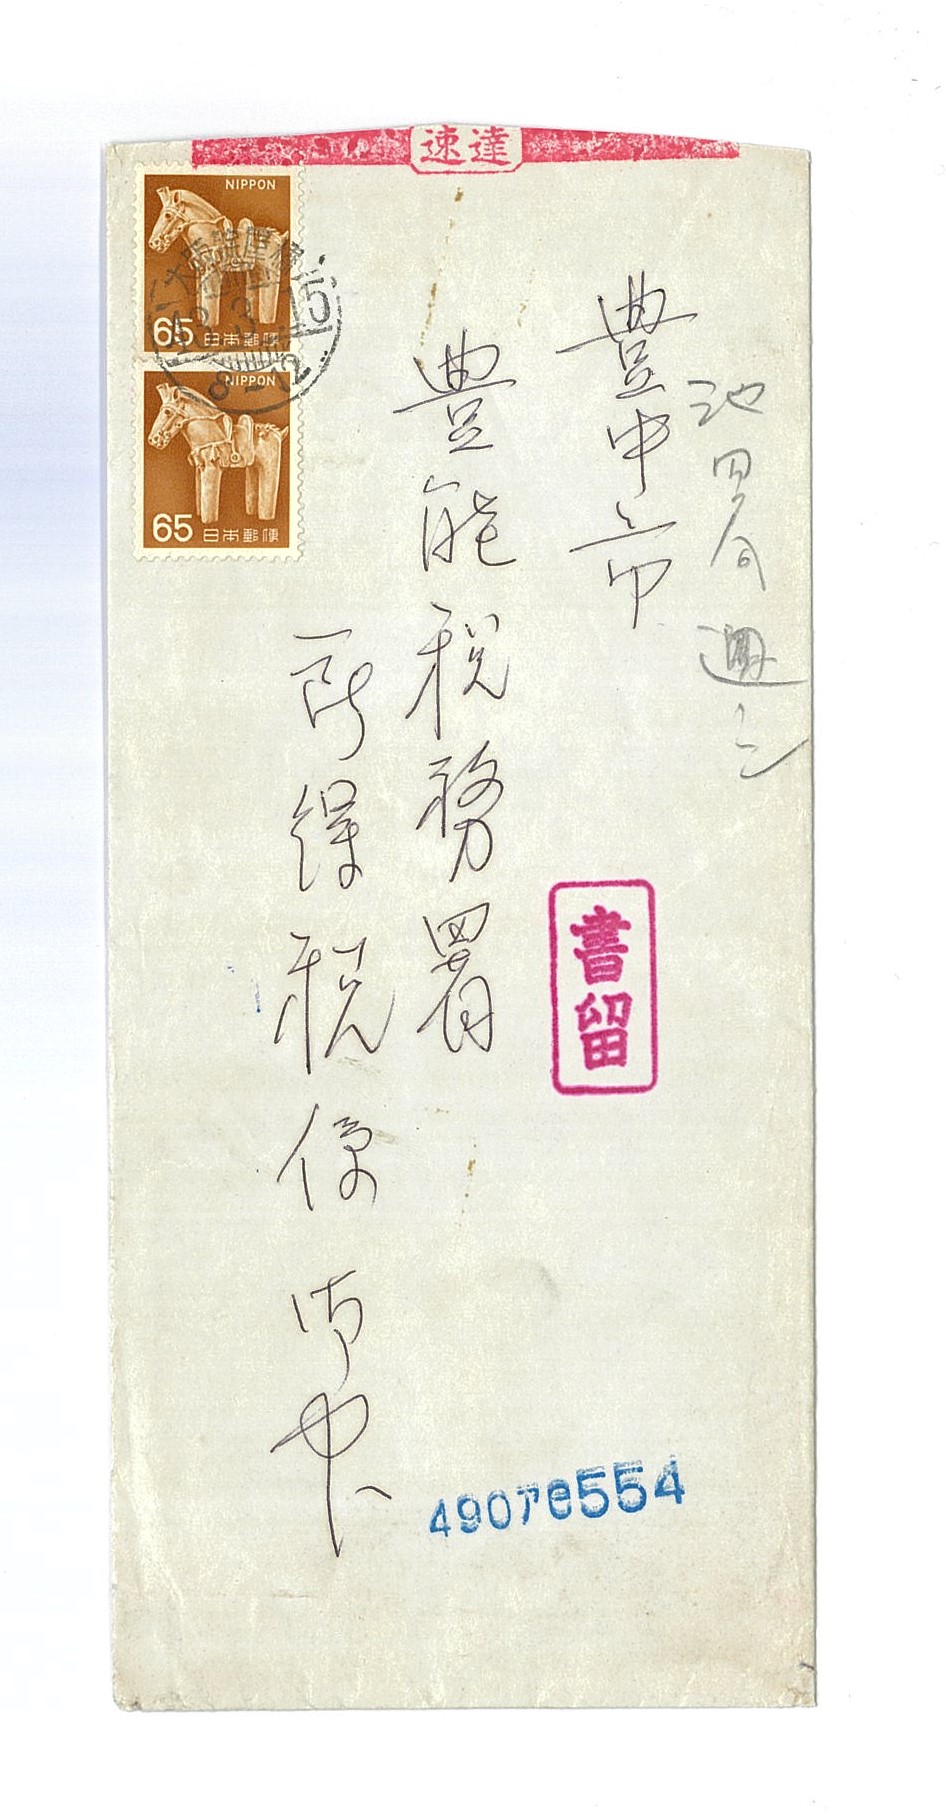 速達
NIPPON
65 日本郵便
NIPPON
65 日本郵便
8-12
池田署
豊中市
豊能税務署
所得税係 御中
書留
49078554